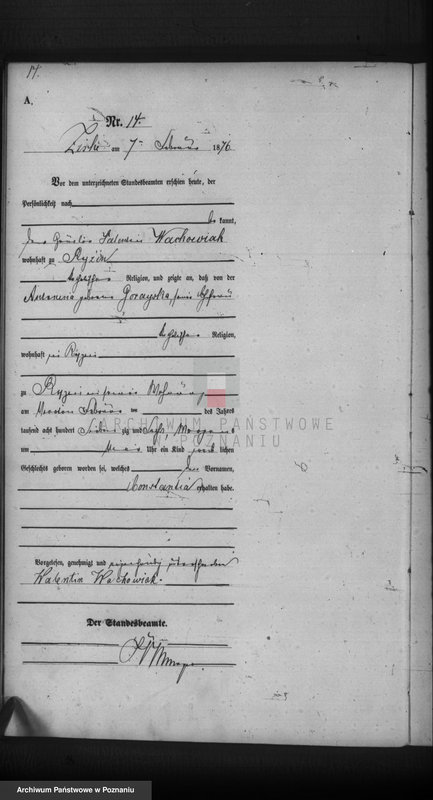 14.
A.
Nr. 14.
Zirke am 7ten Februar 1876
Vor dem unterzeichneten Standesbeamten erschien heute, der
Persönlichkeit nach
be kannt,
der Häusler Valentin Wachowiak
wohnhaft zu Ryzin
katholischer Religion, und zeigte an, daß von der
Antonina geborene seine Ehefrau
katholischer Religion,
wohnhaft
zu Ryzin in seiner Wohnung
am Februar des Jahres
tausend acht hundert siebenzig und sechs Morgens
um Uhr ein Kind lichen
Geschlechts geboren worden sei, welches den Vornamen
Constantia erhalten habe.
Vorgelesen, genehmigt und eigenhändig unterschrieben
Walentin Wachowiak.
Der Standesbeamte.
ARCHIWUM PAŃSTWOWE
W POZNANIU
Archiwum Państwowe w Poznaniu